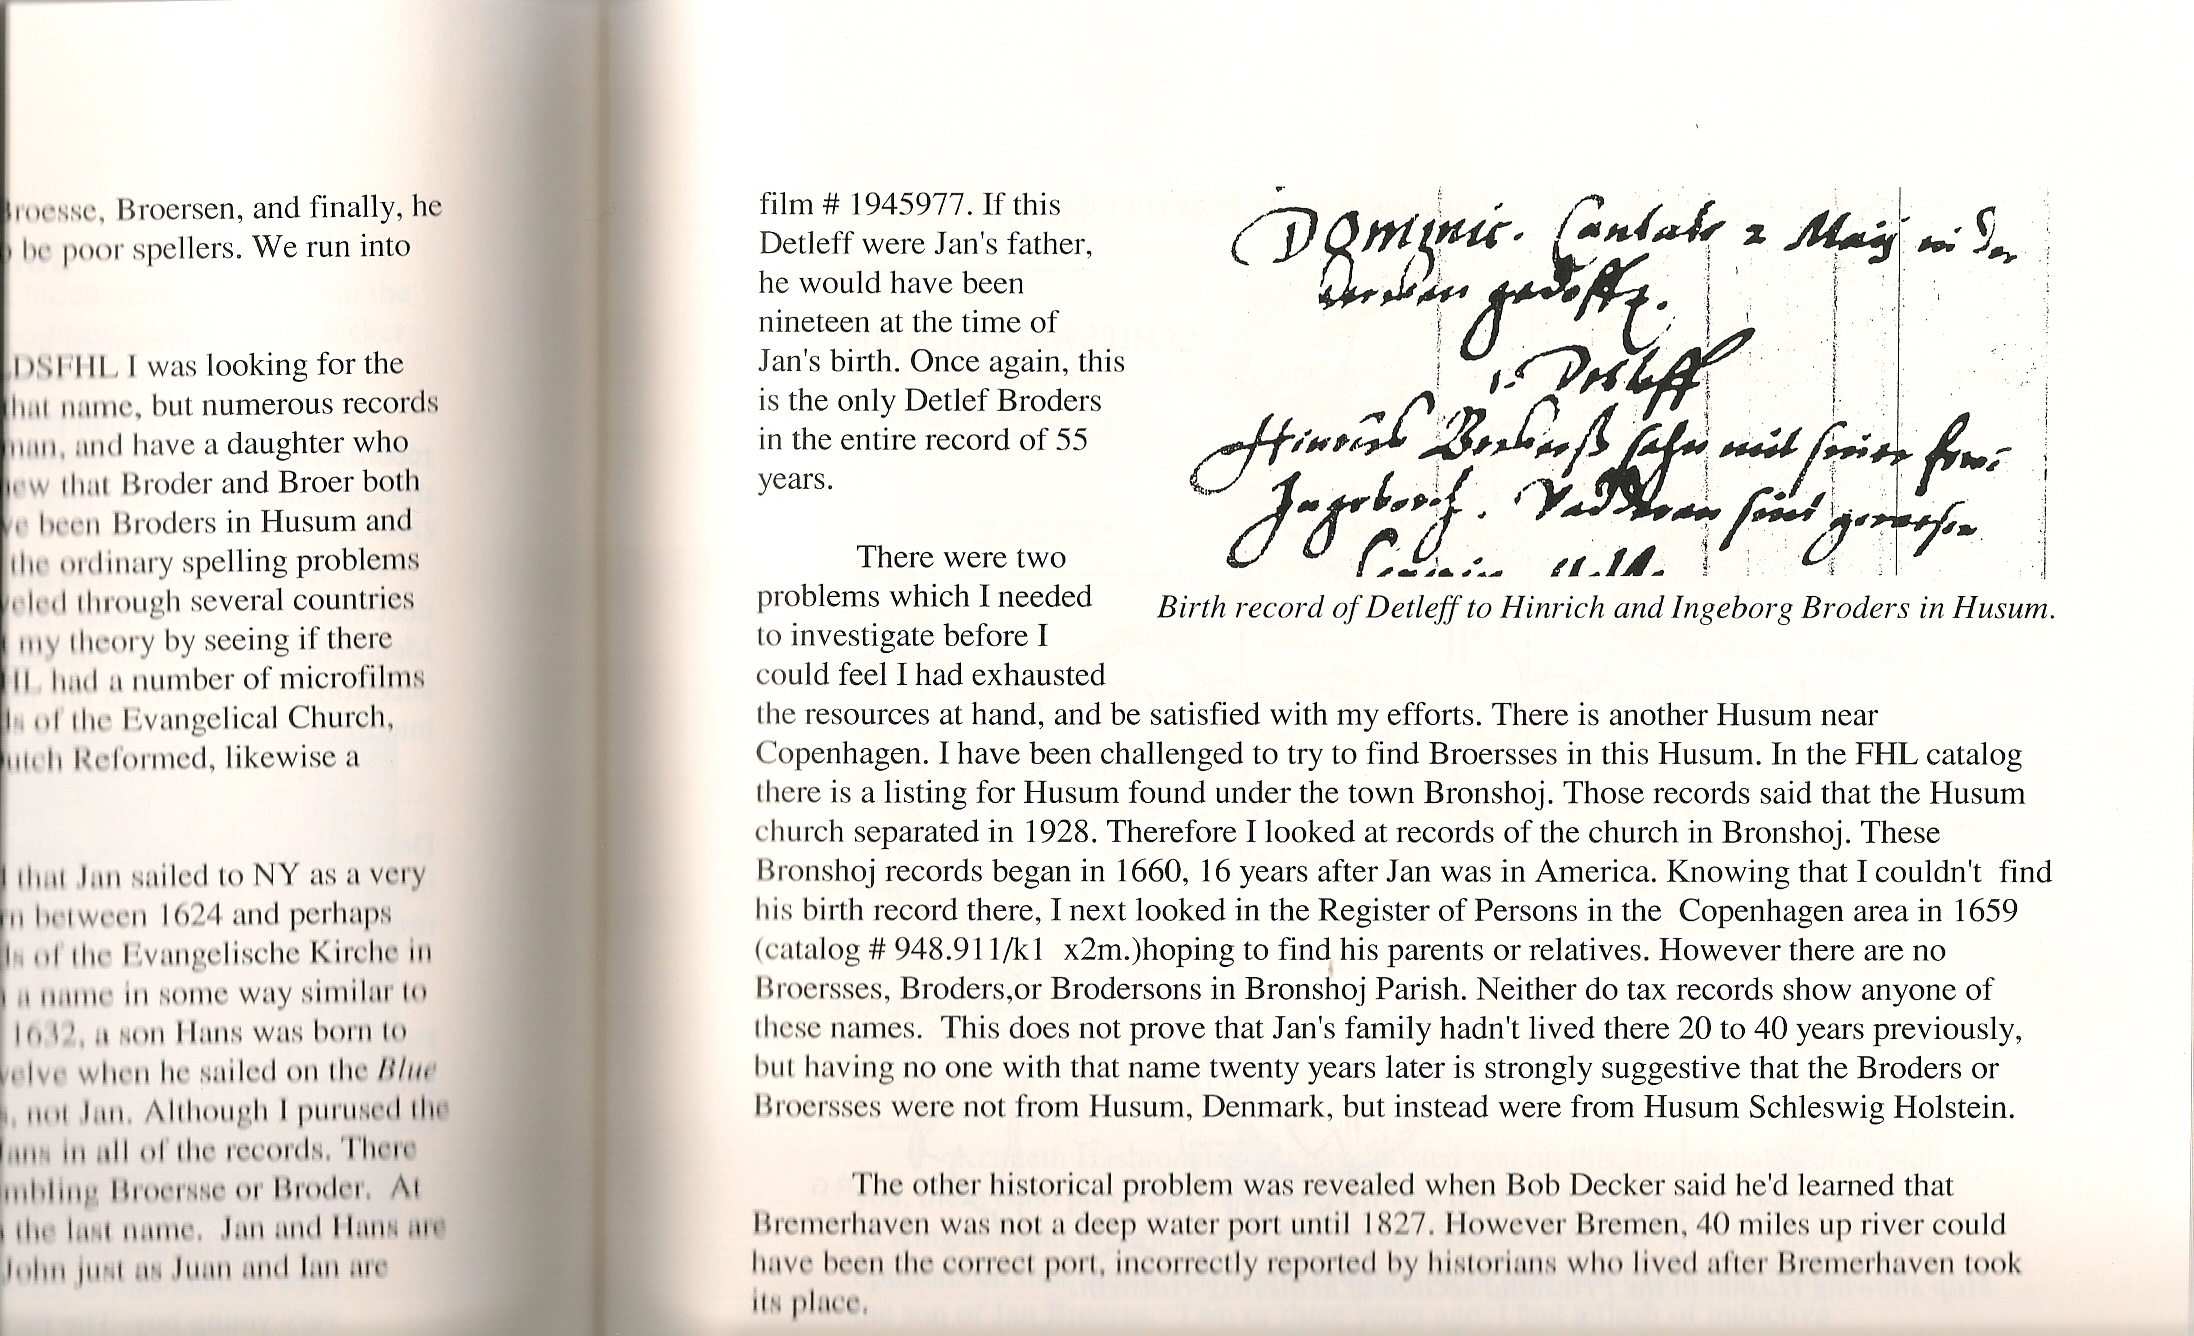 Broersen, and finally, he
be poor spellers. We run into
DSFHL I was looking for the
that name, but numerous records
man, and have a daughter who
that Broder and Broer both
been Broders in Husum and
the ordinary spelling problems
through several countries
my theory by seeing if there
had a number of microfilms
of the Evangelical Church,
Reformed, likewise a
that Jan sailed to NY as a very
between 1624 and perhaps
of the Evangelische Kirche in
a name in some way similar to
1632, a son Hans was born to
when he sailed on the Blue
not Jan. Although I purused the
in all of the records. There
Broersse or Broder. At
the last name. Jan and Hans are
John just as Juan and Ian are
film # 1945977. If this
Detleff were Jan's father,
he would have been
nineteen at the time of
Jan's birth. Once again, this
is the only Detlef Broders
in the entire record of 55
years.
Dominic. Cantate 2 Maij in der
Detleff
sohn mit seiner
Ingeborch. Vadderen sint gewesen
Birth record of Detleff to Hinrich and Ingeborg Broders in Husum.
There were two
problems which I needed
to investigate before I
could feel I had exhausted
the resources at hand, and be satisfied with my efforts. There is another Husum near
Copenhagen. I have been challenged to try to find Broersses in this Husum. In the FHL catalog
there is a listing for Husum found under the town Bronshoj. Those records said that the Husum
church separated in 1928. Therefore I looked at records of the church in Bronshoj. These
Bronshoj records began in 1660, 16 years after Jan was in America. Knowing that I couldn't find
his birth record there, I next looked in the Register of Persons in the Copenhagen area in 1659
(catalog # 948.911/k1 x2m.)hoping to find his parents or relatives. However there are no
Broersses, Broders,or Brodersons in Bronshoj Parish. Neither do tax records show anyone of
these names. This does not prove that Jan's family hadn't lived there 20 to 40 years previously,
but having no one with that name twenty years later is strongly suggestive that the Broders or
Broersses were not from Husum, Denmark, but instead were from Husum Schleswig Holstein.
The other historical problem was revealed when Bob Decker said he'd learned that
Bremerhaven was not a deep water port until 1827. However Bremen, 40 miles up river could
have been the correct port, incorrectly reported by historians who lived after Bremerhaven took
its place.